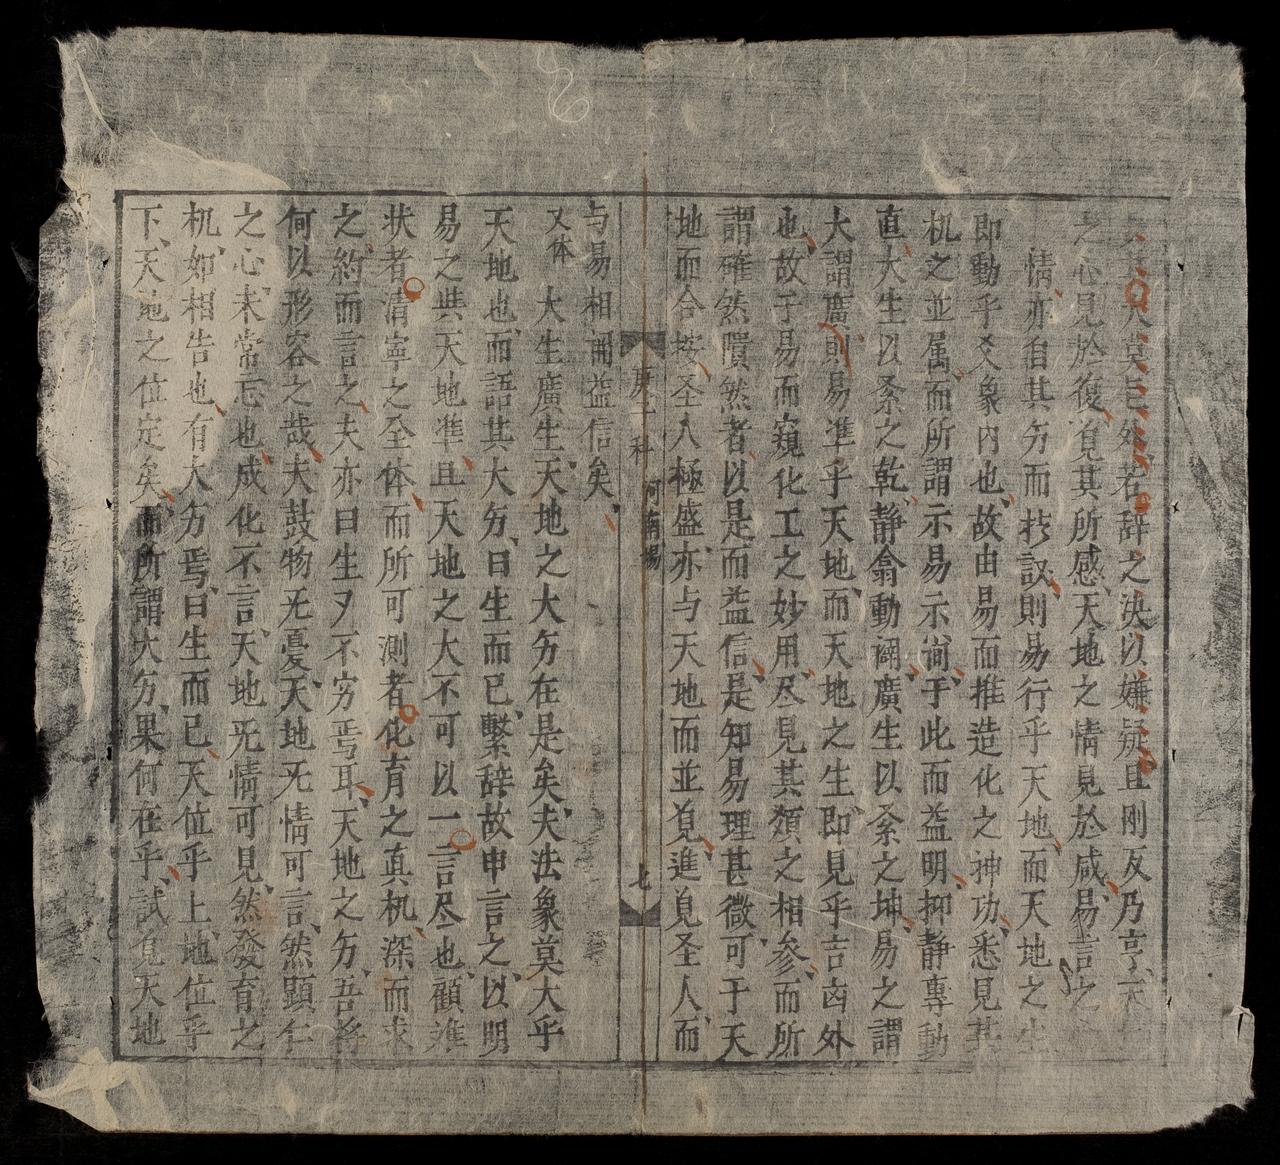 若辞之決以嫌疑且剛反乃亨天
之心見於復寛其所感天地之情見於咸易言之
情亦自其𫝆而擬議則易行乎天地而天地之生
即動乎爻象内也故由易而推造化之神功悉見其
机之並属而所謂示易示简于此而益明抑静專動
直大生以系之乾静翕動闢廣生以系之坤易之謂
大謂廣則易準乎天地而天地之生即見乎言卤外
也故于易而窺化工之妙用尽見其類之相参而所
謂確然隤然者以是而益信是知易理甚微可于天
地而合按圣人極盛亦与天地而並見進見圣人而
科 河南場
七
与易相通益信矣
又体 大生廣生天地之大𫝆在是矣夫法象莫大乎
天地也而語其大𫝆曰生而已繫辞故申言之以明
易之與天地準且天地之大不可以一言尽也顧难
状者清寧之全体而所可測者化育之真机深而求
之約而言之夫亦曰生又不穷焉耳天地之𫝆吾将
何以形容之哉夫鼓物无憂天地无情可言然顕仁
之心未常忘也成化不言天地无情可見然發育之
机如相告也有大𫝆焉曰生而已天位乎上地位乎
下天地之位定矣而所謂大𫝆果何在乎試見天地